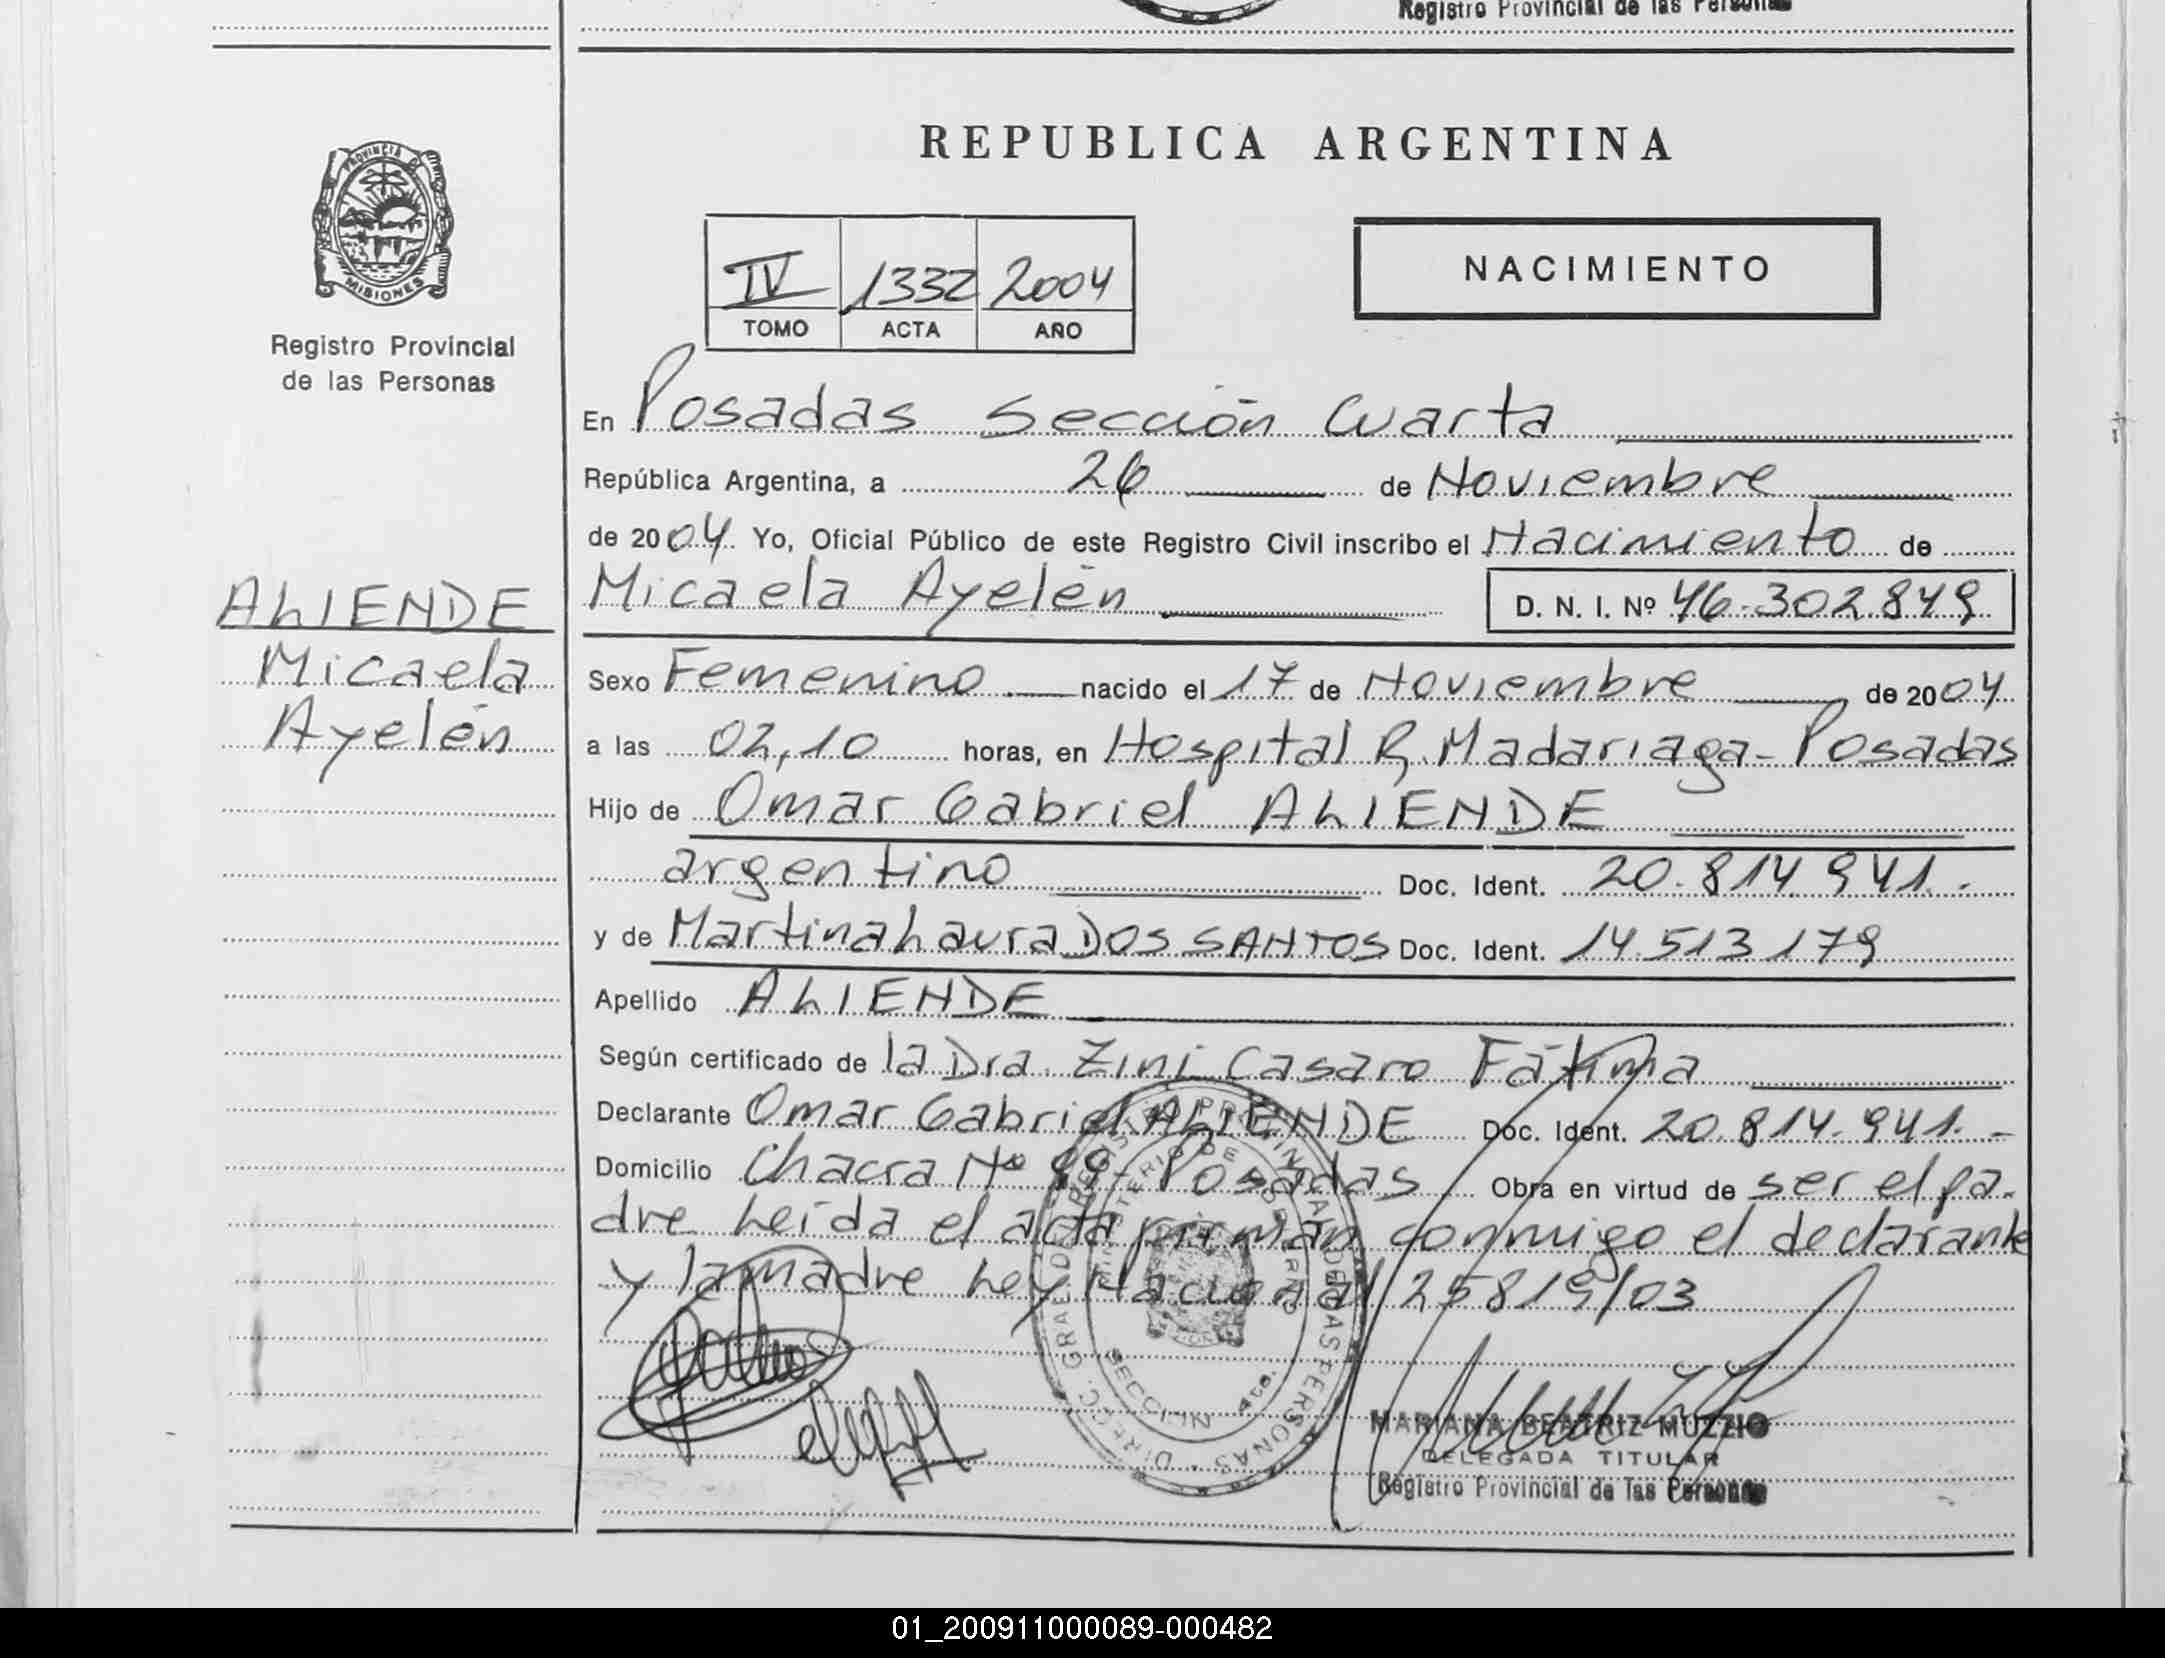 Registro Provincial de las Personas
REPUBLICA ARGENTINA
PROVINCIA D
MISIONES
Registro Provincial
de las Personas
IV 1332 2004
TOMO ACTA AÑO
NACIMIENTO
En Posadas Sección Cuarta
República Argentina, a 26 de Noviembre
de 2004 Yo, Oficial Público de este Registro Civil inscribo el Nacimiento de
Micaela Ayelén D. N. I. Nº 46.302.849
ALIENDE
Micaela
Ayelén
Sexo Femenino nacido el 17 de Noviembre de 2004
a las 02,10 horas, en Hospital R. Madariaga - Posadas
Hijo de Omar Gabriel ALIENDE
argentino Doc. Ident. 20.814.941.
y de Martina Laura DOS SANTOS Doc. Ident. 14.513.179
Apellido ALIENDE
Según certificado de la Dra. Zini Casaro Fátima
Declarante Omar Gabriel ALIENDE Doc. Ident. 20.814.941.-
Domicilio Chacra Nº 99 - Posadas Obra en virtud de ser el pa-
dre Leída el acta firman conmigo el declarante
y la madre Ley Nacional 25819/03
DIRECC. GRAL. DEL REGISTRO PROVINCIAL DE LAS PERSONAS
MINISTERIO DE GOBIERNO
SECCION 4ta.
MARIANA BEATRIZ MUZZIO
DELEGADA TITULAR
Registro Provincial de las Personas
01_200911000089-000482